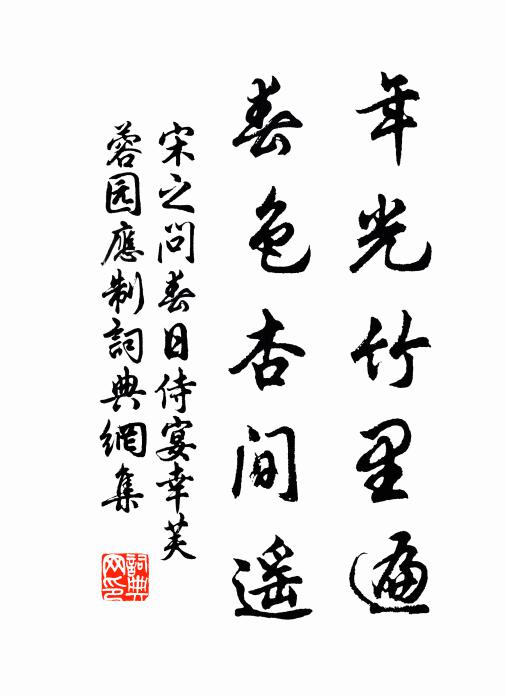 年光竹里遍
春色杏间遥
宋之问春日侍宴幸芙
蓉园應制詞典網集
詞典網印